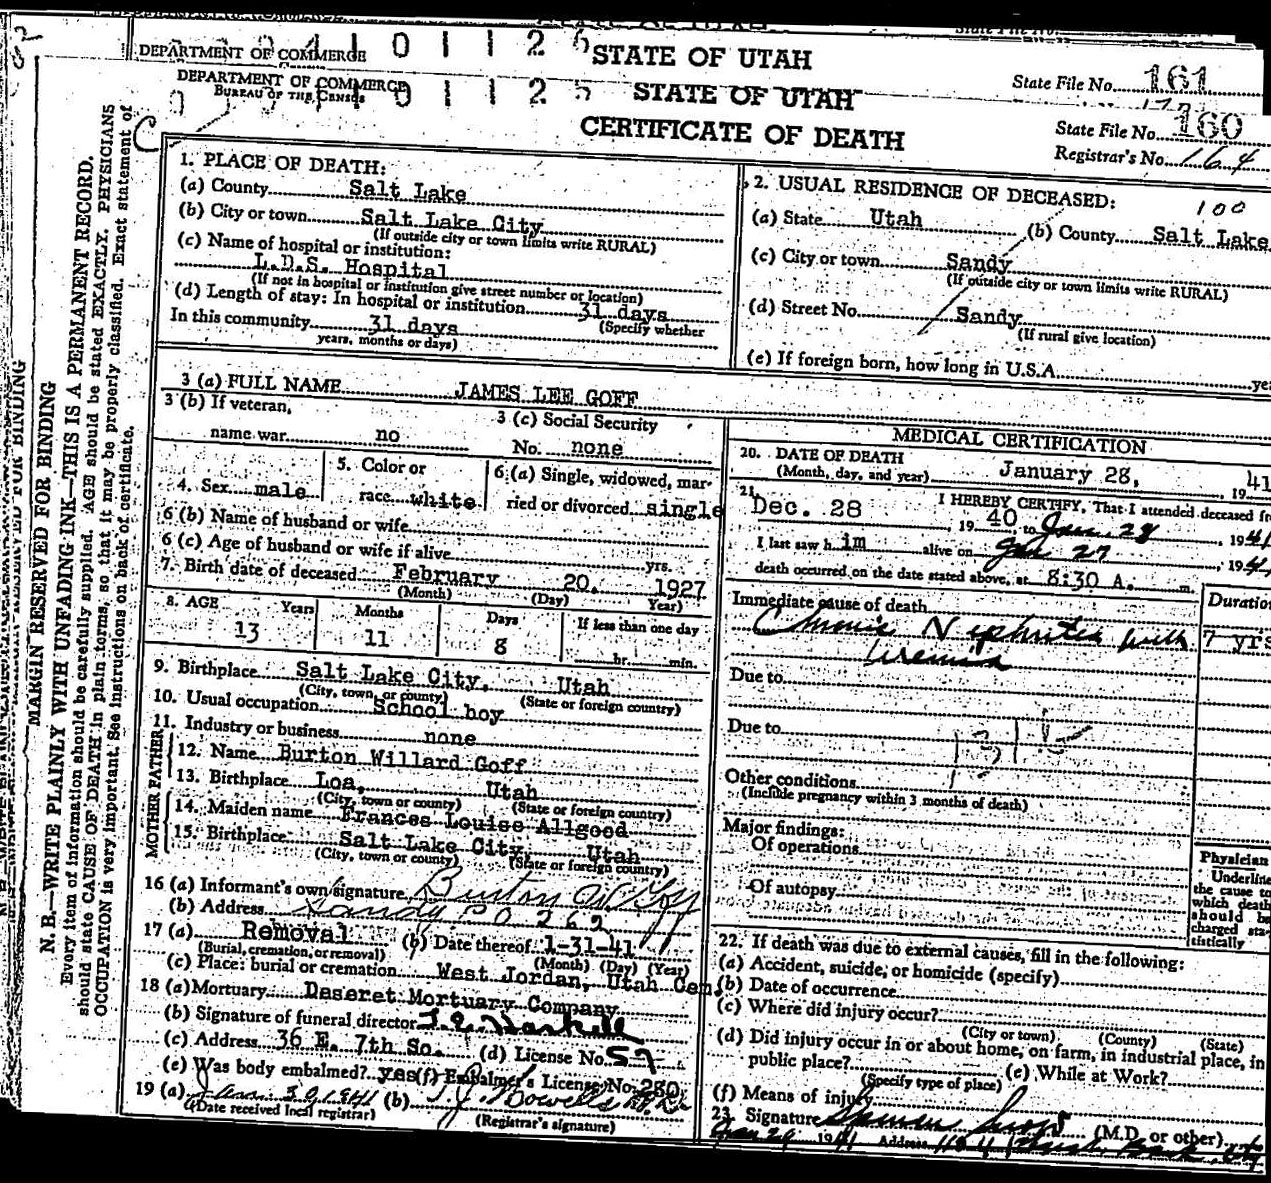 DEPARTMENT OF COMMERCE
0 1 1 2 6
STATE OF UTAH
State File No. 161
DEPARTMENT OF COMMERCE
BUREAU OF THE CENSUS
0 1 1 2 5
STATE OF UTAH
CERTIFICATE OF DEATH
State File No. 160
Registrar's No. 164
MARGIN RESERVED FOR BINDING
N. B.—WRITE PLAINLY WITH UNFADING INK—THIS IS A PERMANENT RECORD.
Every item of information should be carefully supplied. AGE should be stated EXACTLY. PHYSICIANS
should state CAUSE OF DEATH in plain terms, so that it may be properly classified. Exact statement of
OCCUPATION is very important. See instructions on back of certificate.
1. PLACE OF DEATH:
(a) County Salt Lake
(b) City or town Salt Lake City
(If outside city or town limits write RURAL)
(c) Name of hospital or institution:
L.D.S. Hospital
(If not in hospital or institution give street number or location)
(d) Length of stay: In hospital or institution 31 days
(Specify whether
In this community 31 days
years, months or days)
2. USUAL RESIDENCE OF DECEASED: 100
(a) State Utah (b) County Salt Lake
(c) City or town Sandy
(If outside city or town limits write RURAL)
(d) Street No. Sandy
(If rural give location)
(e) If foreign born, how long in U.S.A.
3 (a) FULL NAME JAMES LEE GOFF
3 (b) If veteran,
name war no
3 (c) Social Security
No. none
4. Sex male
5. Color or
race white
6 (a) Single, widowed, mar-
ried or divorced single
6 (b) Name of husband or wife
6 (c) Age of husband or wife if alive yrs.
7. Birth date of deceased February 20, 1927
(Month) (Day) Year)
8. AGE Years Months Days If less than one day
13 11 8 hr. min.
9. Birthplace Salt Lake City, Utah
(City, town, or county) (State or foreign country)
10. Usual occupation School boy
11. Industry or business none
FATHER
12. Name Burton Willard Goff
13. Birthplace Loa, Utah
(City, town or county) (State or foreign country)
MOTHER
14. Maiden name Frances Louise Allgood
15. Birthplace Salt Lake City Utah
(City, town or county) (State or foreign country)
16 (a) Informant's own signature Burton W Goff
(b) Address Sandy P O 262
17 (a) Removal (b) Date thereof 1-31-41
(Burial, cremation, or removal) (Month) (Day) (Year)
(c) Place: burial or cremation West Jordan, Utah Cem.
18 (a) Mortuary Deseret Mortuary Company
(b) Signature of funeral director
(c) Address 36 E. 7th So. (d) License No. 57
(e) Was body embalmed? yes (f) Embalmer's License No. 280
19 (a) Jan 30 1941 (b)
(Date received local registrar) (Registrar's signature)
MEDICAL CERTIFICATION
20. DATE OF DEATH
(Month, day, and year) January 28, 1941
21. I HEREBY CERTIFY, That I attended deceased
Dec. 28 1940 to Jan. 28, 194
I last saw him alive on Jan 27, 194
death occurred on the date stated above, at 8:30 A. m.
Immediate cause of death
Duration
Chronic Nephritis with 7 yrs
Uremia
Due to
Due to
Other conditions
(Include pregnancy within 3 months of death)
Major findings:
Of operations
Of autopsy
Physician
Underline
the cause to
which death
should be
charged sta-
tistically
22. If death was due to external causes, fill in the following:
(a) Accident, suicide, or homicide (specify)
(b) Date of occurrence
(c) Where did injury occur?
(City or town) (County) (State)
(d) Did injury occur in or about home, on farm, in industrial place, in
public place? (e) While at Work?
(Specify type of place)
(f) Means of injury
23. Signature Spencer Snow (M.D. or other)
Jan 29 1941 Address